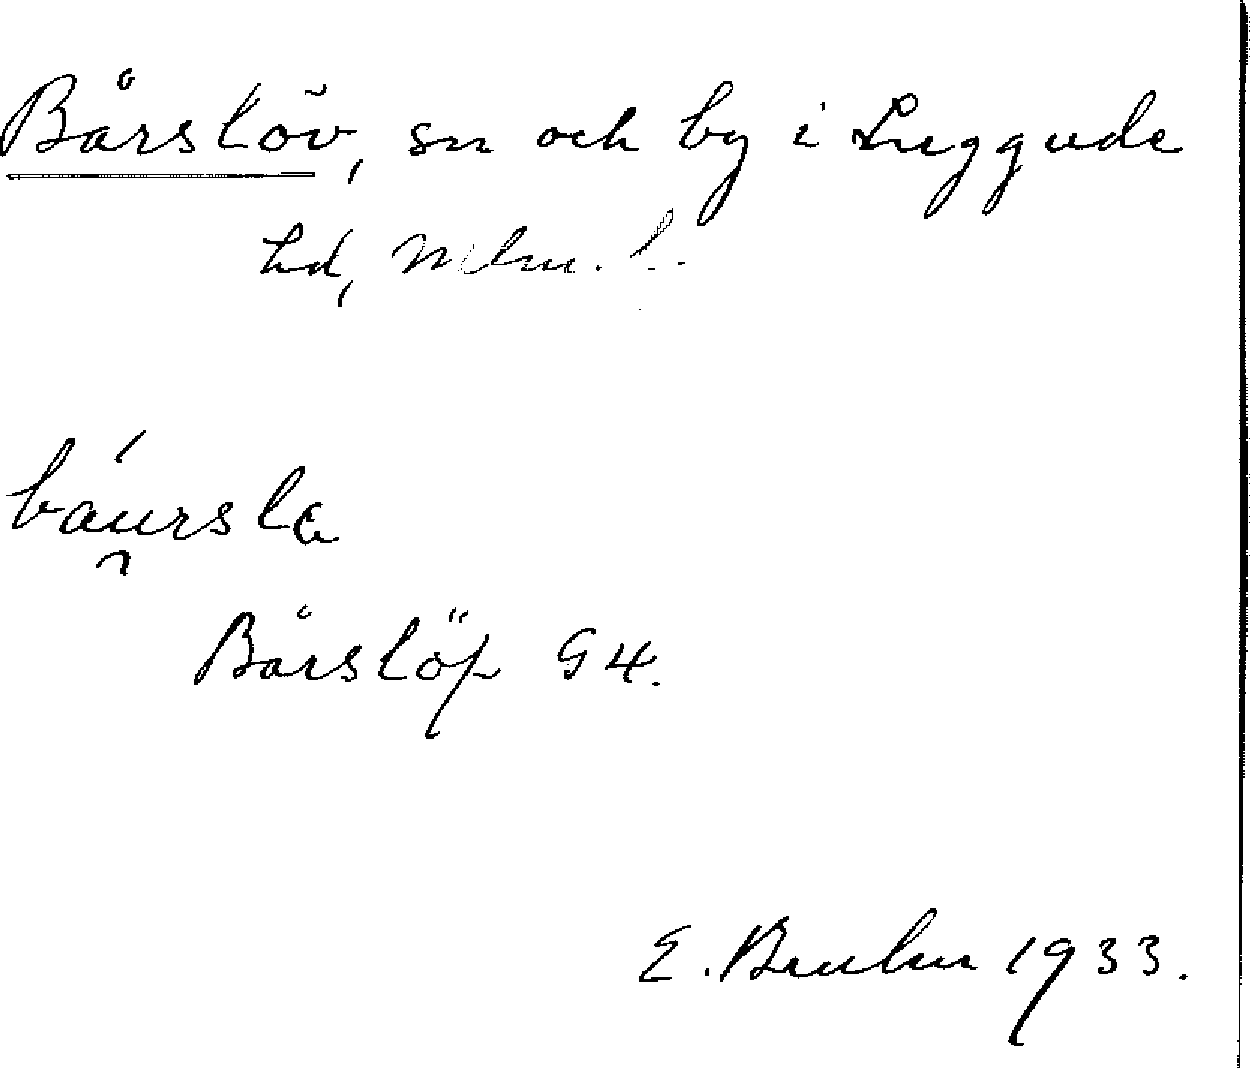 Bårslöv, sn och by i Luggude
hd, Mlm. l.
báu̯rsla
Bårslöp G4.
E. Bruhn 1933.